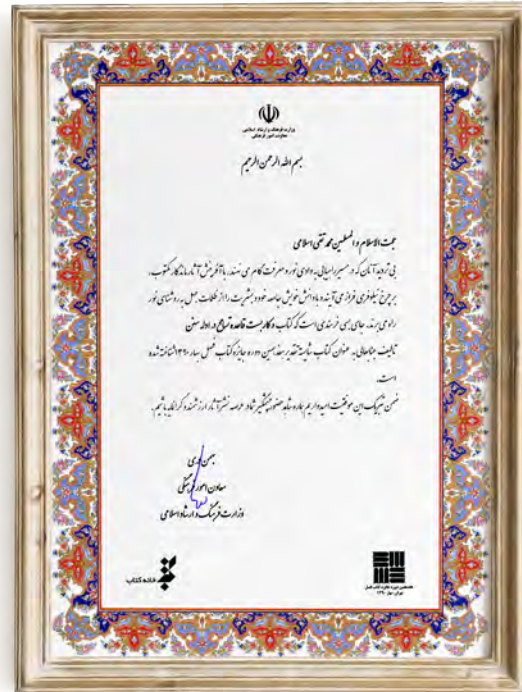 وزارت فرهنگ و ارشاد اسلامی
معاونت امور فرهنگی
بسم الله الرحمن الرحیم
حجت الاسلام و المسلمین محمد تقی اسلامی
بی تردید آنان که در مسیر راهیابی به وادی نور و معرفت گام می نهند، با آفرینش آثار ماندگار مکتوب،
بر چرخ نیلوفری فراز می آیند و با دانش خویش جامعه خود و بشریت را از ظلمات جهل به روشنای نور
راه می برند. جای بسی خرسندی است که کتاب «کاربست قاعده تسامح در ادله سنن
تألیف جنابعالی به عنوان کتاب شایسته تقدیر هجدهمین دوره جایزه کتاب فصل بهار ۱۳۹۰ شناخته شده
است.
ضمن تبریک این موفقیت امیدواریم همواره شاهد حضور چشمگیر شما در عرصه نشر آثار ارزشمند و گرانمایه باشیم.
بهمن دری
معاون امور فرهنگی
وزارت فرهنگ و ارشاد اسلامی
خانه کتاب
دوره جایزه کتاب فصل
تهران، بهار ۱۳۹۰